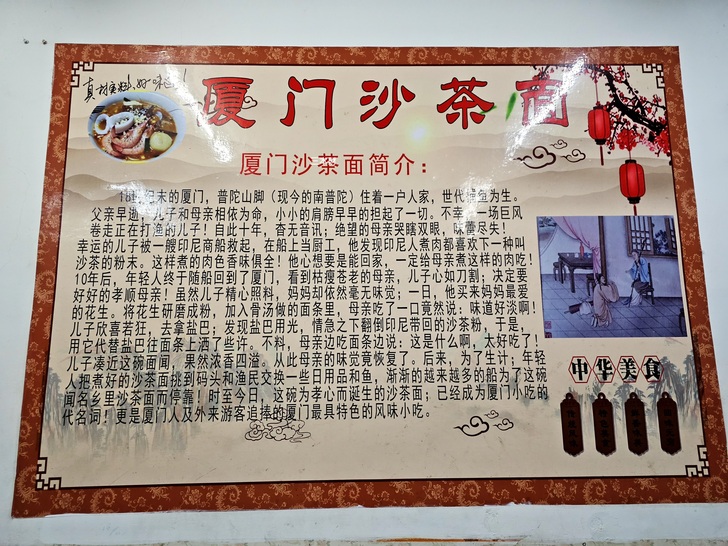 厦门沙茶面
厦门沙茶面简介：
18世纪末的厦门，普陀山脚（现今的南普陀）住着一户人家，世代捕鱼为生。
父亲早逝，儿子和母亲相依为命，小小的肩膀早早的担起了一切。不幸，一场巨风
卷走正在打渔的儿子！自此十年，杳无音讯；绝望的母亲哭瞎双眼，味蕾尽失！
幸运的儿子被一艘印尼商船救起，在船上当厨工，他发现印尼人煮肉都喜欢下一种叫
沙茶的粉末。这样煮的肉色香味俱全！他心想要是能回家，一定给母亲煮这样的肉吃！
10年后，年轻人终于随船回到了厦门，看到枯瘦苍老的母亲，儿子心如刀割；决定要
好好的孝顺母亲！虽然儿子精心照料，妈妈却依然毫无味觉；一日，他买来妈妈最爱
的花生。将花生研磨成粉，加入骨汤做的面条里，母亲吃了一口竟然说：味道好淡啊！
儿子欣喜若狂，去拿盐巴；发现盐巴用光，情急之下翻倒印尼带回的沙茶粉，于是，
用它代替盐巴往面条上洒了些许。不料，母亲边吃面条边说：这是什么啊，太好吃了！
儿子凑近这碗面闻，果然浓香四溢。从此母亲的味觉竟恢复了。后来，为了生计；年轻
人把煮好的沙茶面挑到码头和渔民交换一些日用品和鱼，渐渐的越来越多的船为了这碗
闻名乡里沙茶面而停靠！时至今日，这碗为孝心而诞生的沙茶面；已经成为厦门小吃的
代名词！更是厦门人及外来游客追捧的厦门最具特色的风味小吃。
中华美食